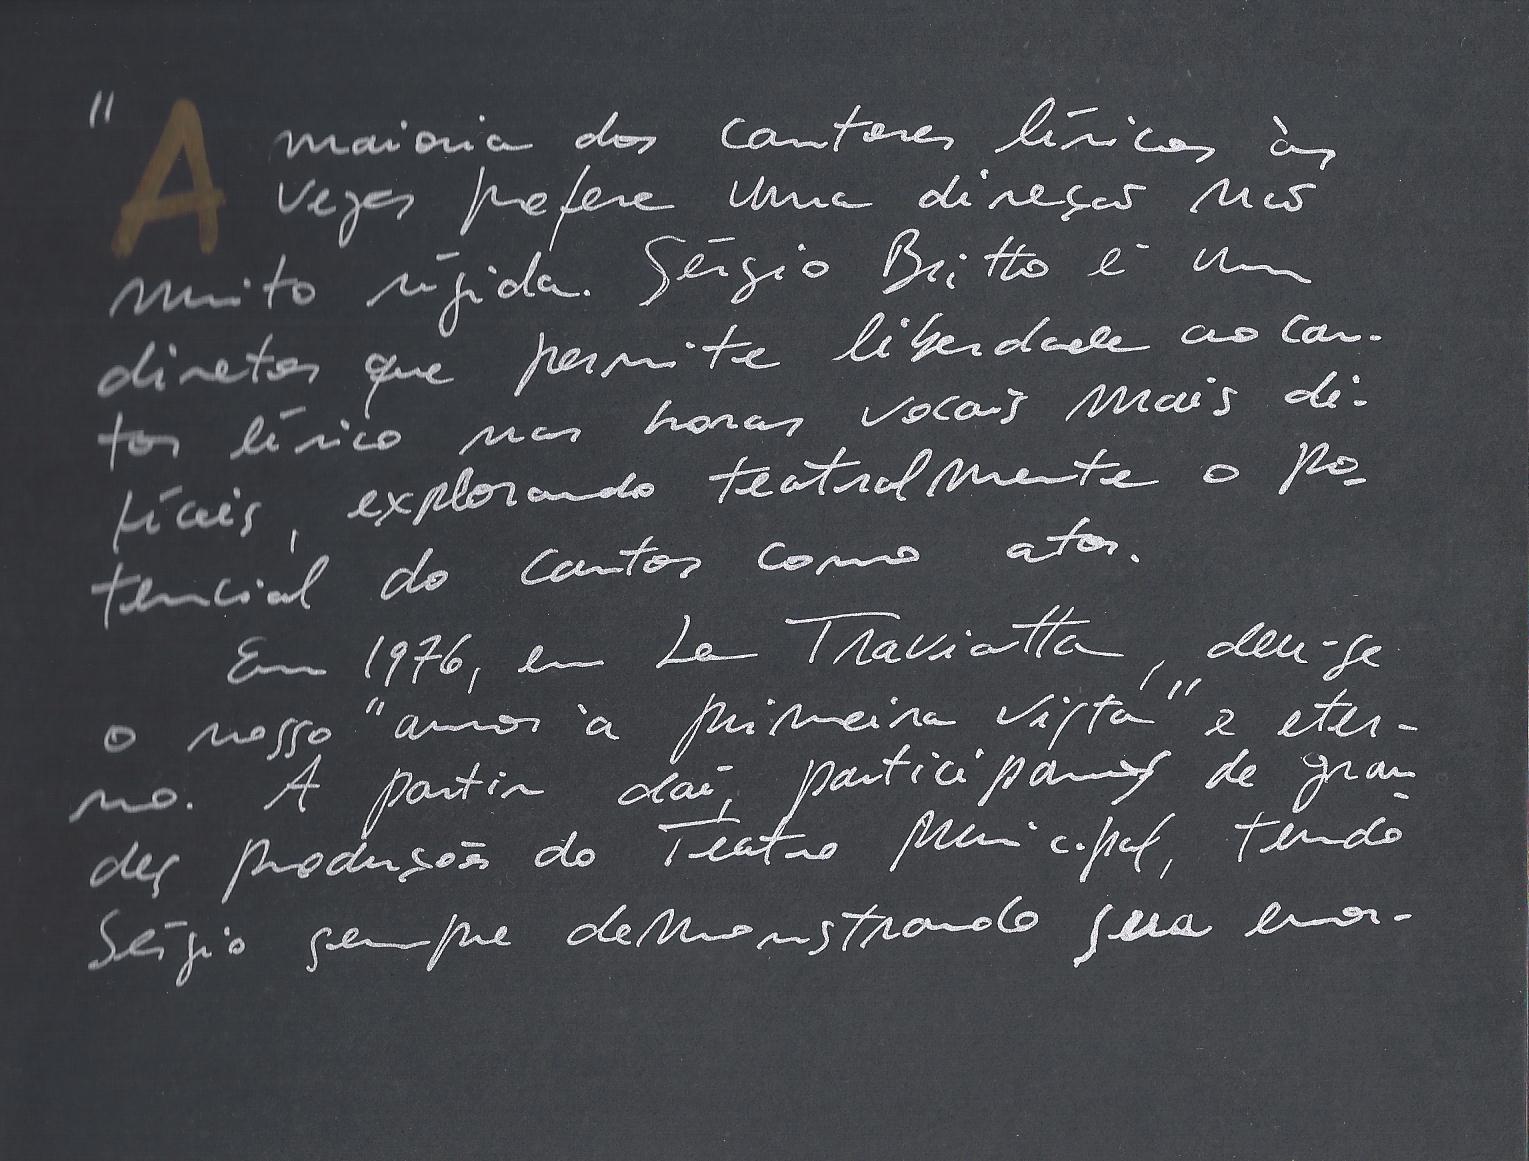 "A maioria dos cantores líricos às
vezes prefere uma direção não
muito rígida. Sérgio Britto é um
diretor que permite liberdade ao can-
tor lírico nas horas vocais mais di-
fíceis, explorando teatralmente o po-
tencial do cantor como ator.
Em 1976, em La Traviatta, deu-se
o nosso "amor à primeira vista" e eter-
no. A partir daí, participamos de gran-
des produções do Teatro Municipal, tendo
Sérgio sempre demonstrando sua enor-